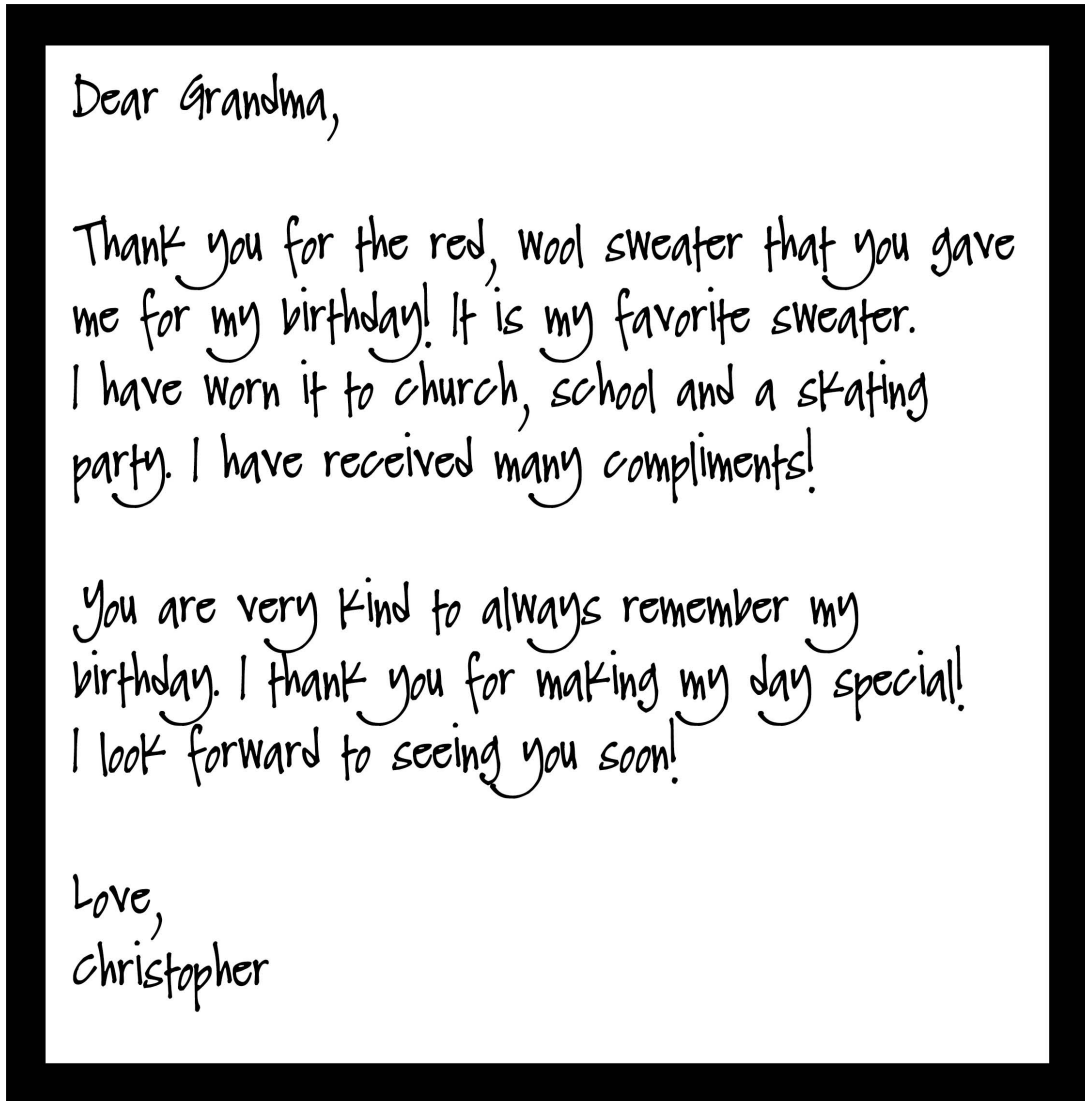 Dear Grandma,
Thank you for the red, wool sweater that you gave
me for my birthday! It is my favorite sweater.
I have worn it to church, school and a skating
party. I have received many compliments!
You are very kind to always remember my
birthday. I thank you for making my day special!
I look forward to seeing you soon!
Love,
Christopher